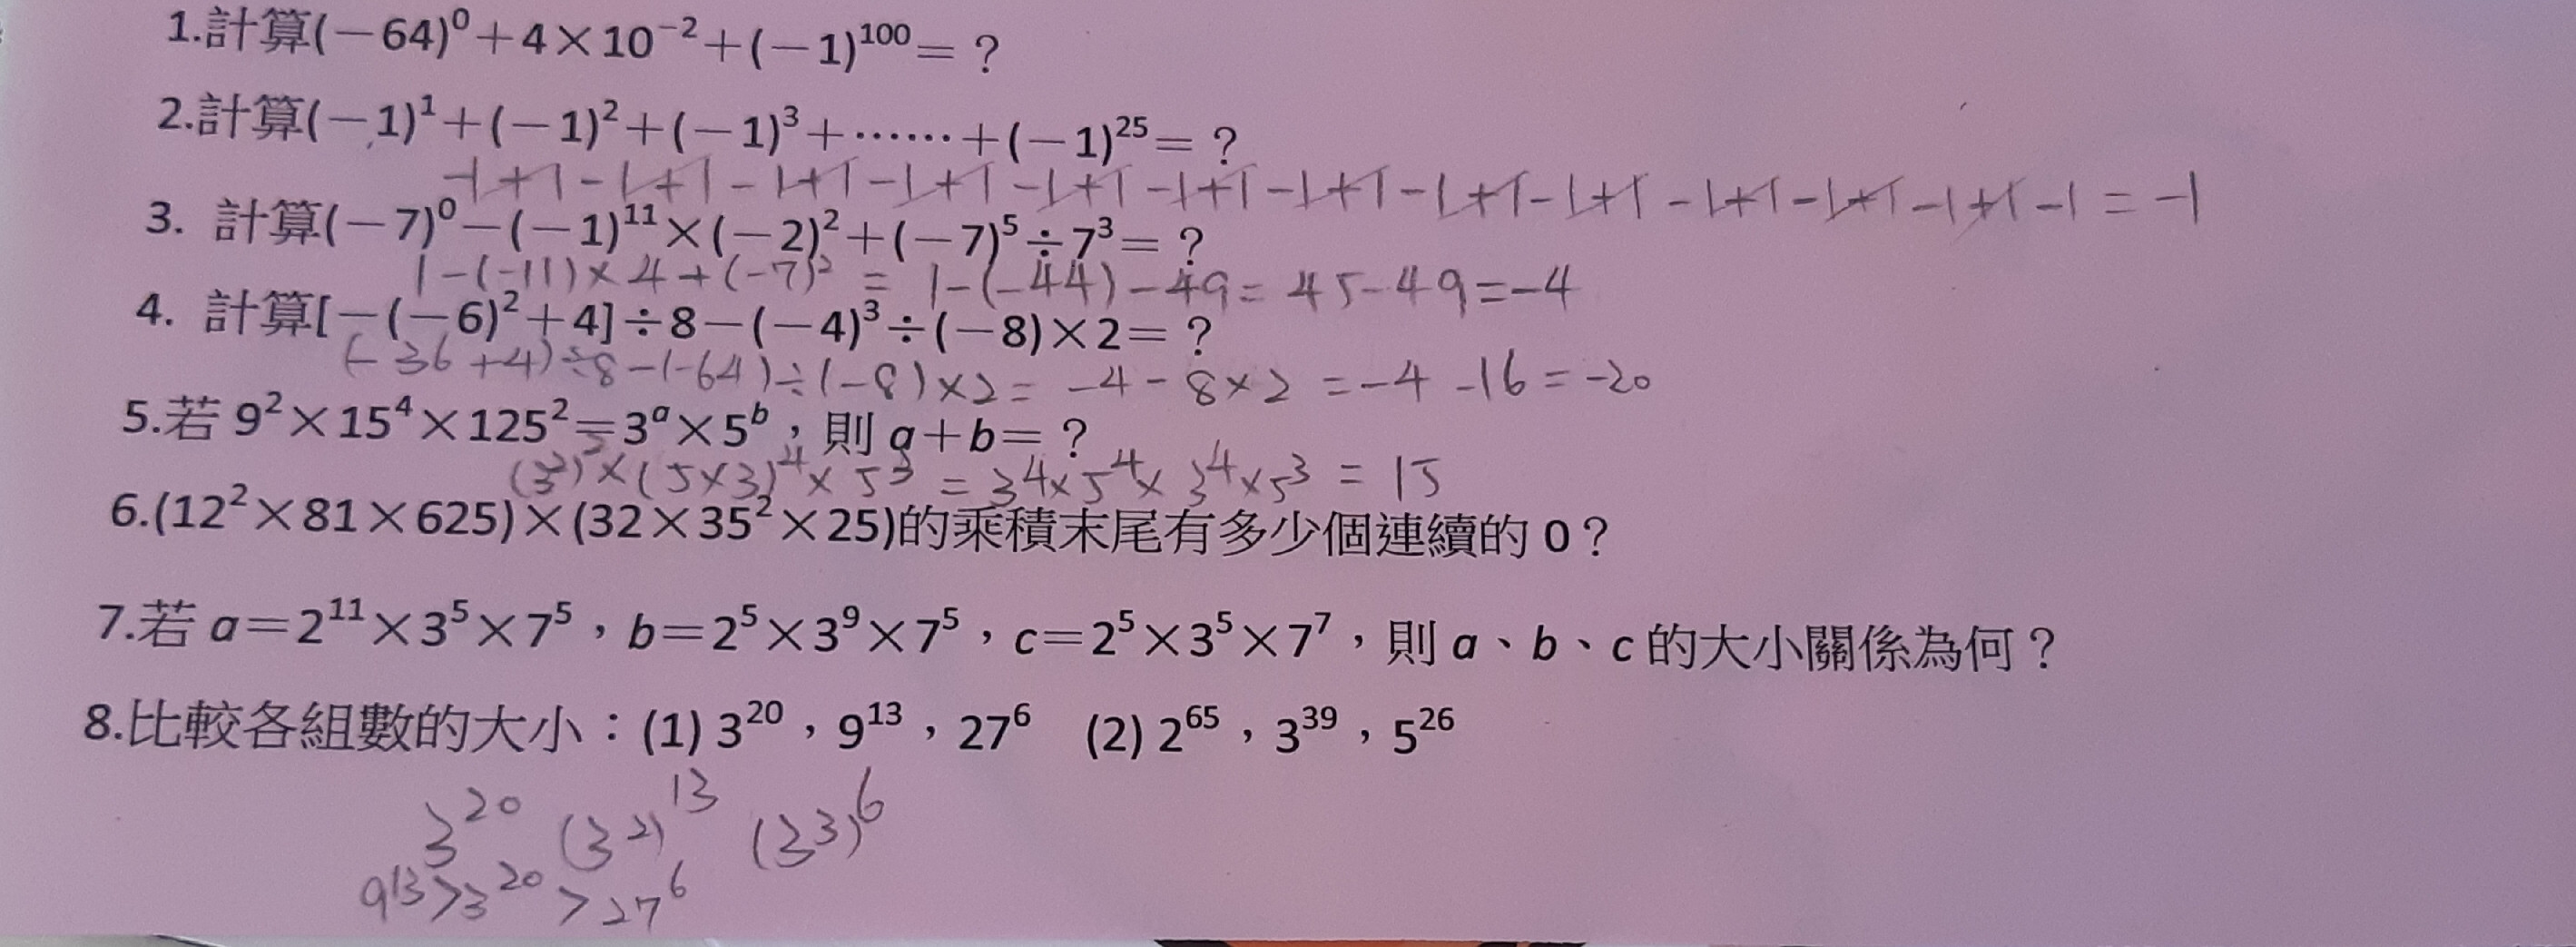 1.計算(−64)⁰+4×10⁻²+(−1)¹⁰⁰=?
2.計算(−1)¹+(−1)²+(−1)³+⋯⋯+(−1)²⁵=?
-1+1-1+1-1+1-1+1-1+1-1+1-1+1-1+1-1+1-1+1-1+1-1+1-1=-1
3. 計算(−7)⁰−(−1)¹¹×(−2)²+(−7)⁵÷7³=?
1-(-11)×4+(-7)²=1-(-44)-49=45-49=-4
4. 計算[−(−6)²+4]÷8−(−4)³÷(−8)×2=?
(-36+4)÷8-(-64)÷(-8)×2=-4-8×2=-4-16=-20
5.若 9²×15⁴×125²=3ᵃ×5ᵇ,則 a+b=?
(3²)²×(5×3)⁴×5³=3⁴×5⁴×3⁴×5³=15
6.(12²×81×625)×(32×35²×25)的乘積末尾有多少個連續的 0?
7.若 a=2¹¹×3⁵×7⁵,b=2⁵×3⁹×7⁵,c=2⁵×3⁵×7⁷,則 a、b、c 的大小關係為何?
8.比較各組數的大小:(1) 3²⁰,9¹³,27⁶ (2) 2⁶⁵,3³⁹,5²⁶
3²⁰ (3²)¹³ (3³)⁶
9¹³>3²⁰>27⁶